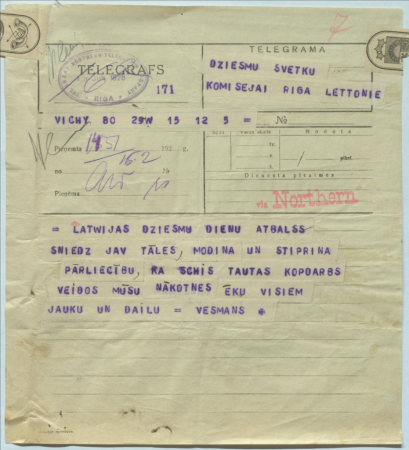 7
TELEGRAFS
TELEGRAMA
RIGA
171
DZIESMU SVETKU
KOMISEJAI RIGA LETTONIE
VICHY 80 29W 15 12 5 = No
Pieņemta
193
g.
no
Pieņēma
Nodots
plkst.
Dienesta piezīmes
via Northern
= LATWIJAS DZIESMU DIENU ATBALSS
SNIEDZ JAV TĀLES, MODINA UN STIPRINA
PĀRLIECĪBU, KA SCHIS TAUTAS KOPDARBS
VEIDOS MŪSU NĀKOTNES ĒKU VISIEM
JAUKU UN DAIĻU = VESMANS